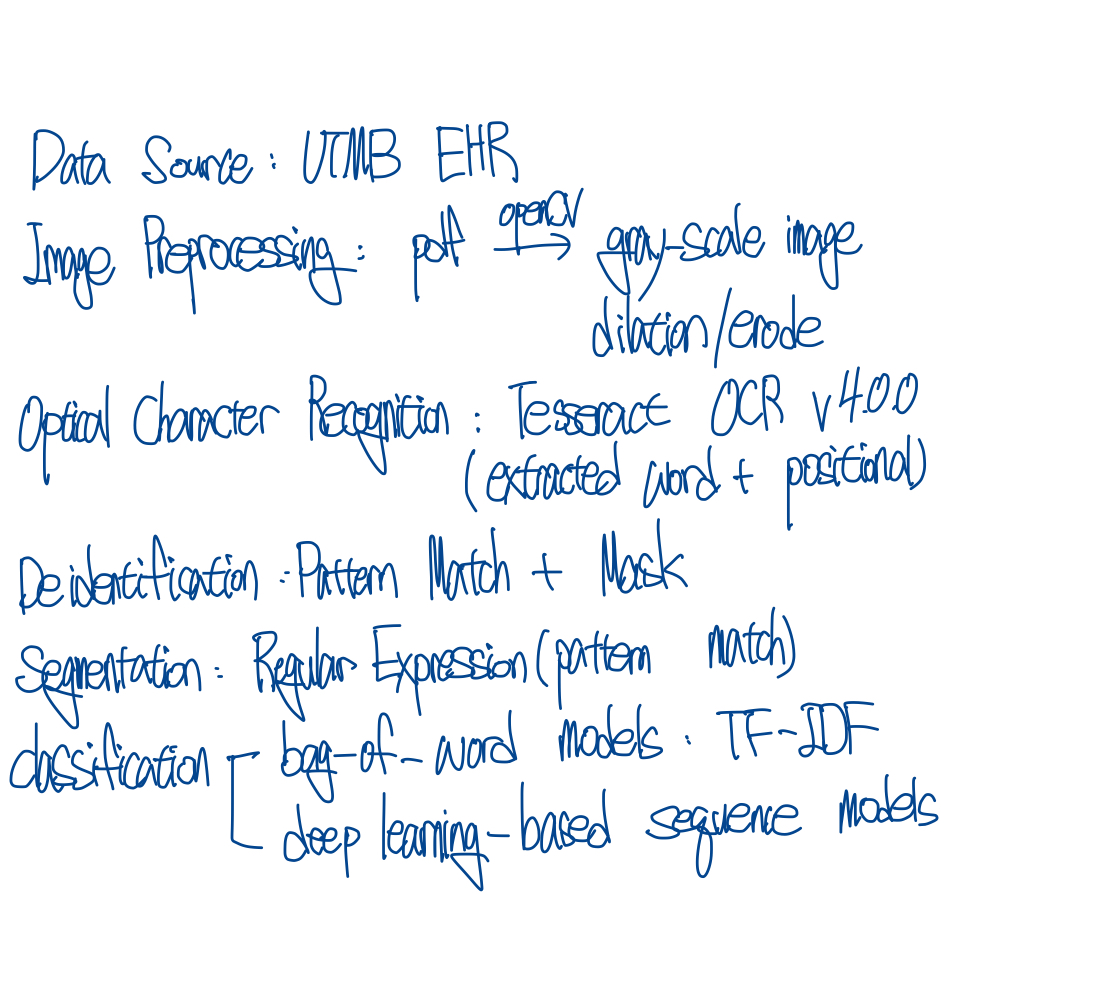 Data Source : UTMB EHR
Image Preprocessing : pdf openCV → gray-scale image
dilation/erode
Optical Character Recognition : Tesseract OCR v4.0.0
(extracted word + positional)
Deidentification : Pattern Match + Mask
Segmentation : Regular Expression (pattern match)
classification bag-of-word models : TF-IDF
deep learning-based sequence models